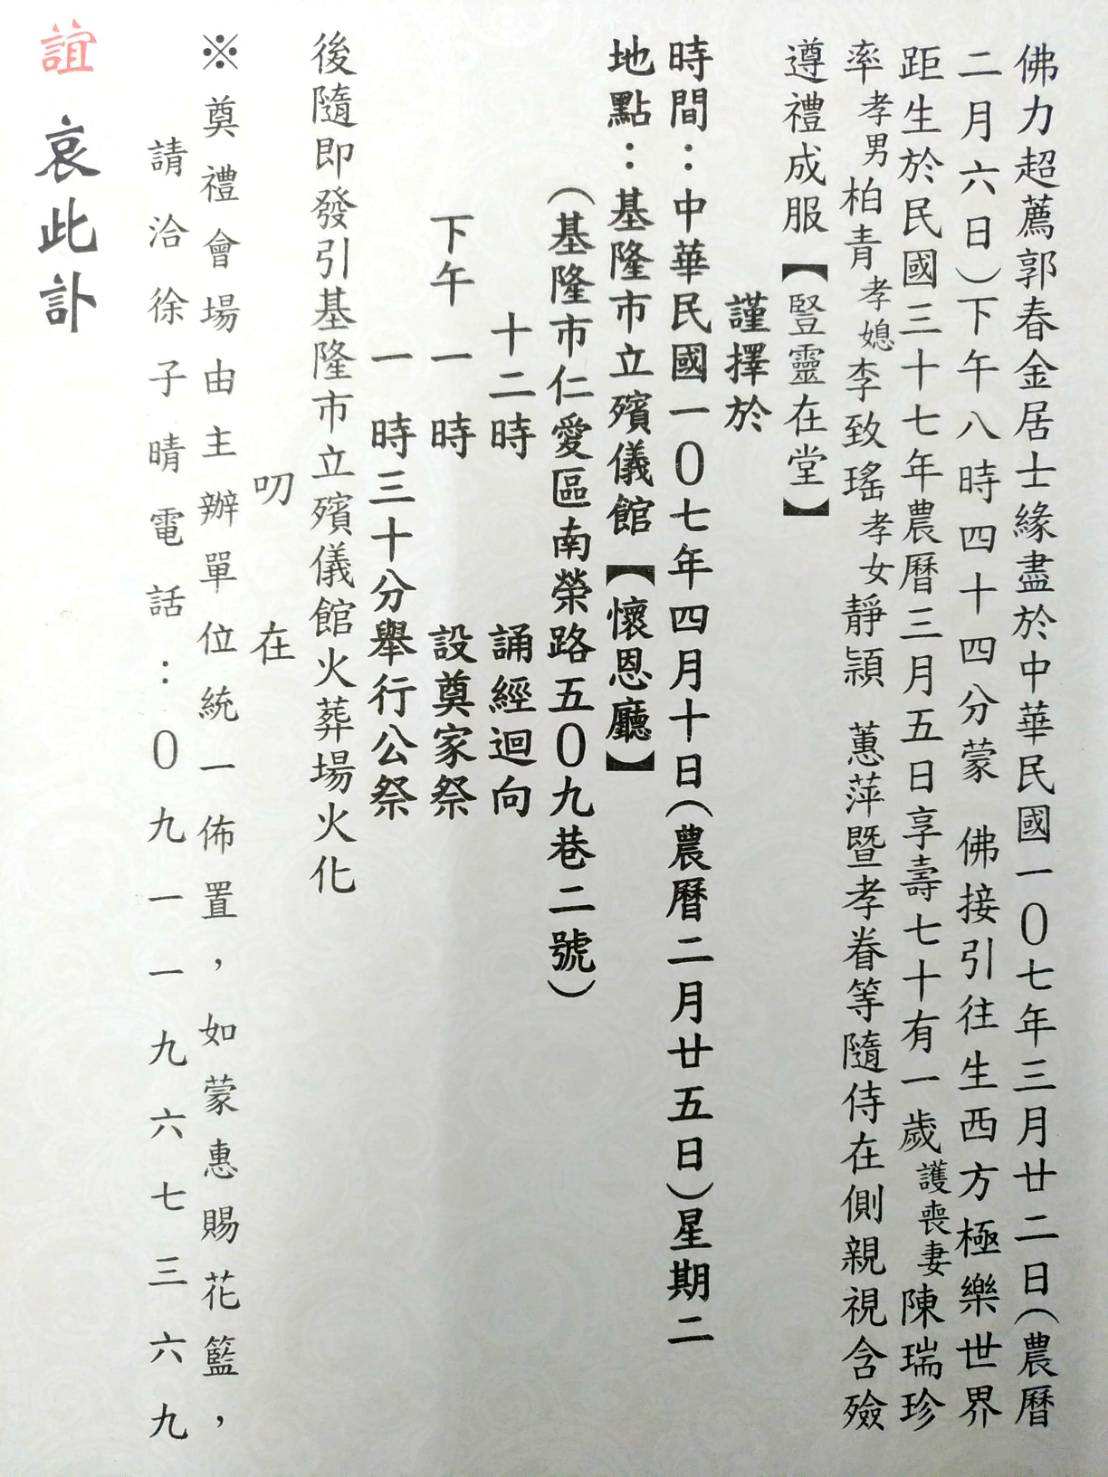 佛力超薦郭春金居士緣盡於中華民國一０七年三月廿二日（農曆
二月六日）下午八時四十四分蒙　佛接引往生西方極樂世界
距生於民國三十七年農曆三月五日享壽七十有一歲護喪妻陳瑞珍
率孝男柏青孝媳李致瑤孝女靜頴　蕙萍暨孝眷等隨侍在側親視含殮
遵禮成服【豎靈在堂】
謹擇於
時間：中華民國一０七年四月十日（農曆二月廿五日）星期二
地點：基隆市立殯儀館【懷恩廳】
（基隆市仁愛區南榮路五０九巷二號）
十二時　誦經迴向
下午一　時　設奠家祭
一　時三十分舉行公祭
後隨即發引基隆市立殯儀館火葬場火化
叨　在
※奠禮會場由主辦單位統一佈置，如蒙惠賜花籃，
請洽徐子晴電話：０九一一九六七三六九
誼　哀此訃